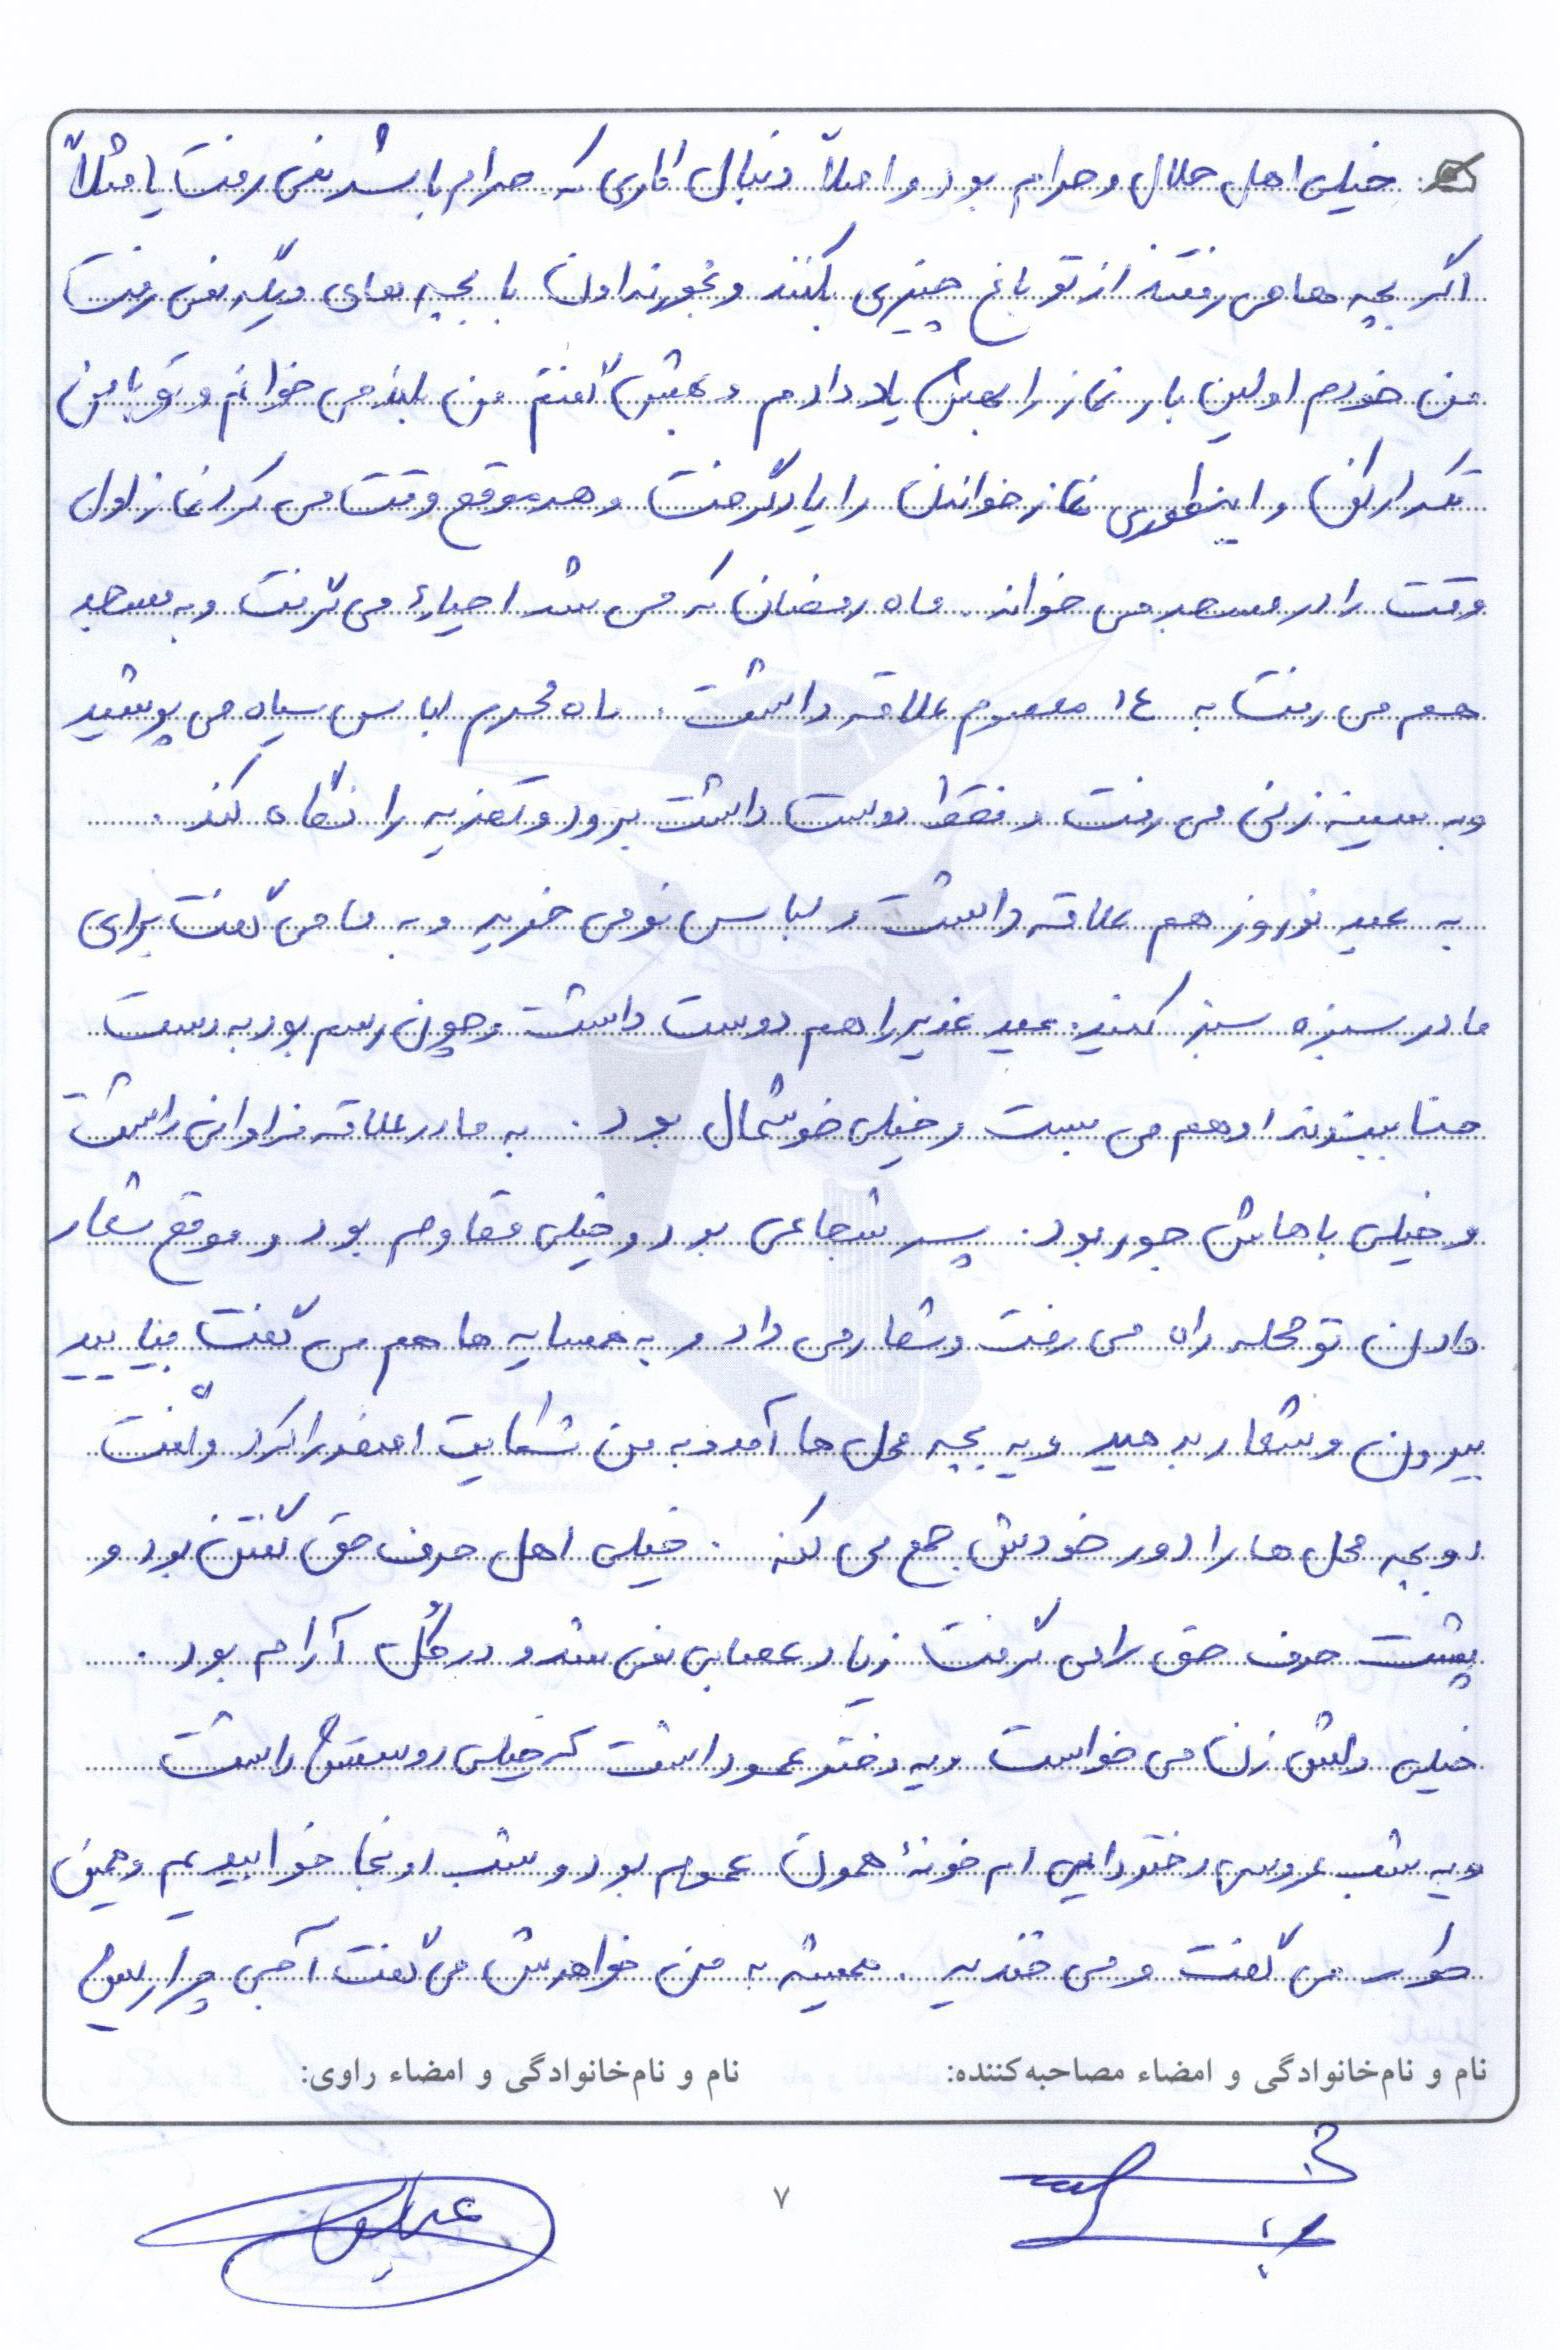 خیلی اهل حلال و حرام بود و اصلاً دنبال کاری که حرام باشد نمی رفت یا مثلاً
اگر بچه ها می رفتند از تو باغ چیزی بکنند و بخورند اون با بچه های دیگه نمی رفت
من خودم اولین بار نماز را بهش یاد دادم و بهش گفتم من بلند می خوانم و تو با من
تکرار کن و اینطوری نماز خواندن را یاد گرفت و هر موقع وقت می کرد نماز اول
وقت را در مسجد می خواند. ماه رمضان که می شد احیاء می گرفت و به مسجد
هم می رفت به ١٤ معصوم علاقه داشت. ماه محرم لباس سیاه می پوشید
و به سینه زنی می رفت و فقط دوست داشت برود و تعزیه را نگاه کند.
به عید نوروز هم علاقه داشت و لباس نو می خرید و به ما می گفت برای
مادر سبزه سبز کنید. عید غدیر را هم دوست داشت و چون رسم بود به دست
حنا ببندند او هم می بست و خیلی خوشحال بود. به مادر علاقه فراوانی داشت
و خیلی باهاش جور بود. پسر شجاعی بود و خیلی مقاوم بود و موقع شعار
دادن تو محله راه می رفت و شعار می داد و به همسایه ها هم می گفت بیایید
بیرون و شعار بدهید و یه بچه محل ها آمد و به من شکایت اصغر را کرد و گفت
دو بچه محل ها را دور خودش جمع می کنه. خیلی اهل حرف حق گفتن بود و
پشت حرف حق را می گرفت زیاد عصبانی نمی شد و در کُل آرام بود.
خیلی دلش زن می خواست و یه دختر عمو داشت که خیلی دوستش داشت
و یه شب عروسی دختر دایی ام خونۀ همون عموم بود و شب اونجا خوابیدیم و همین
طور می گفت و می خندید. همیشه به من خواهرش می گفت آجی چرا
نام و نام‌خانوادگی و امضاء مصاحبه‌کننده:
نام و نام‌خانوادگی و امضاء راوی:
٧